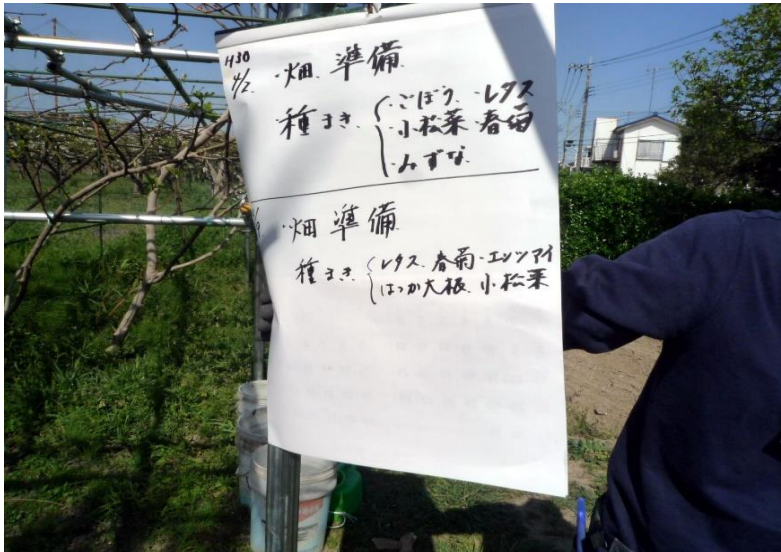 H30
4/2 ・畑 準備
種まき ・ごぼう ・レタス
・小松菜 春菊
・みずな
・畑 準備
種まき ・レタス 春菊 ・エンツァイ
はつか大根 小松菜